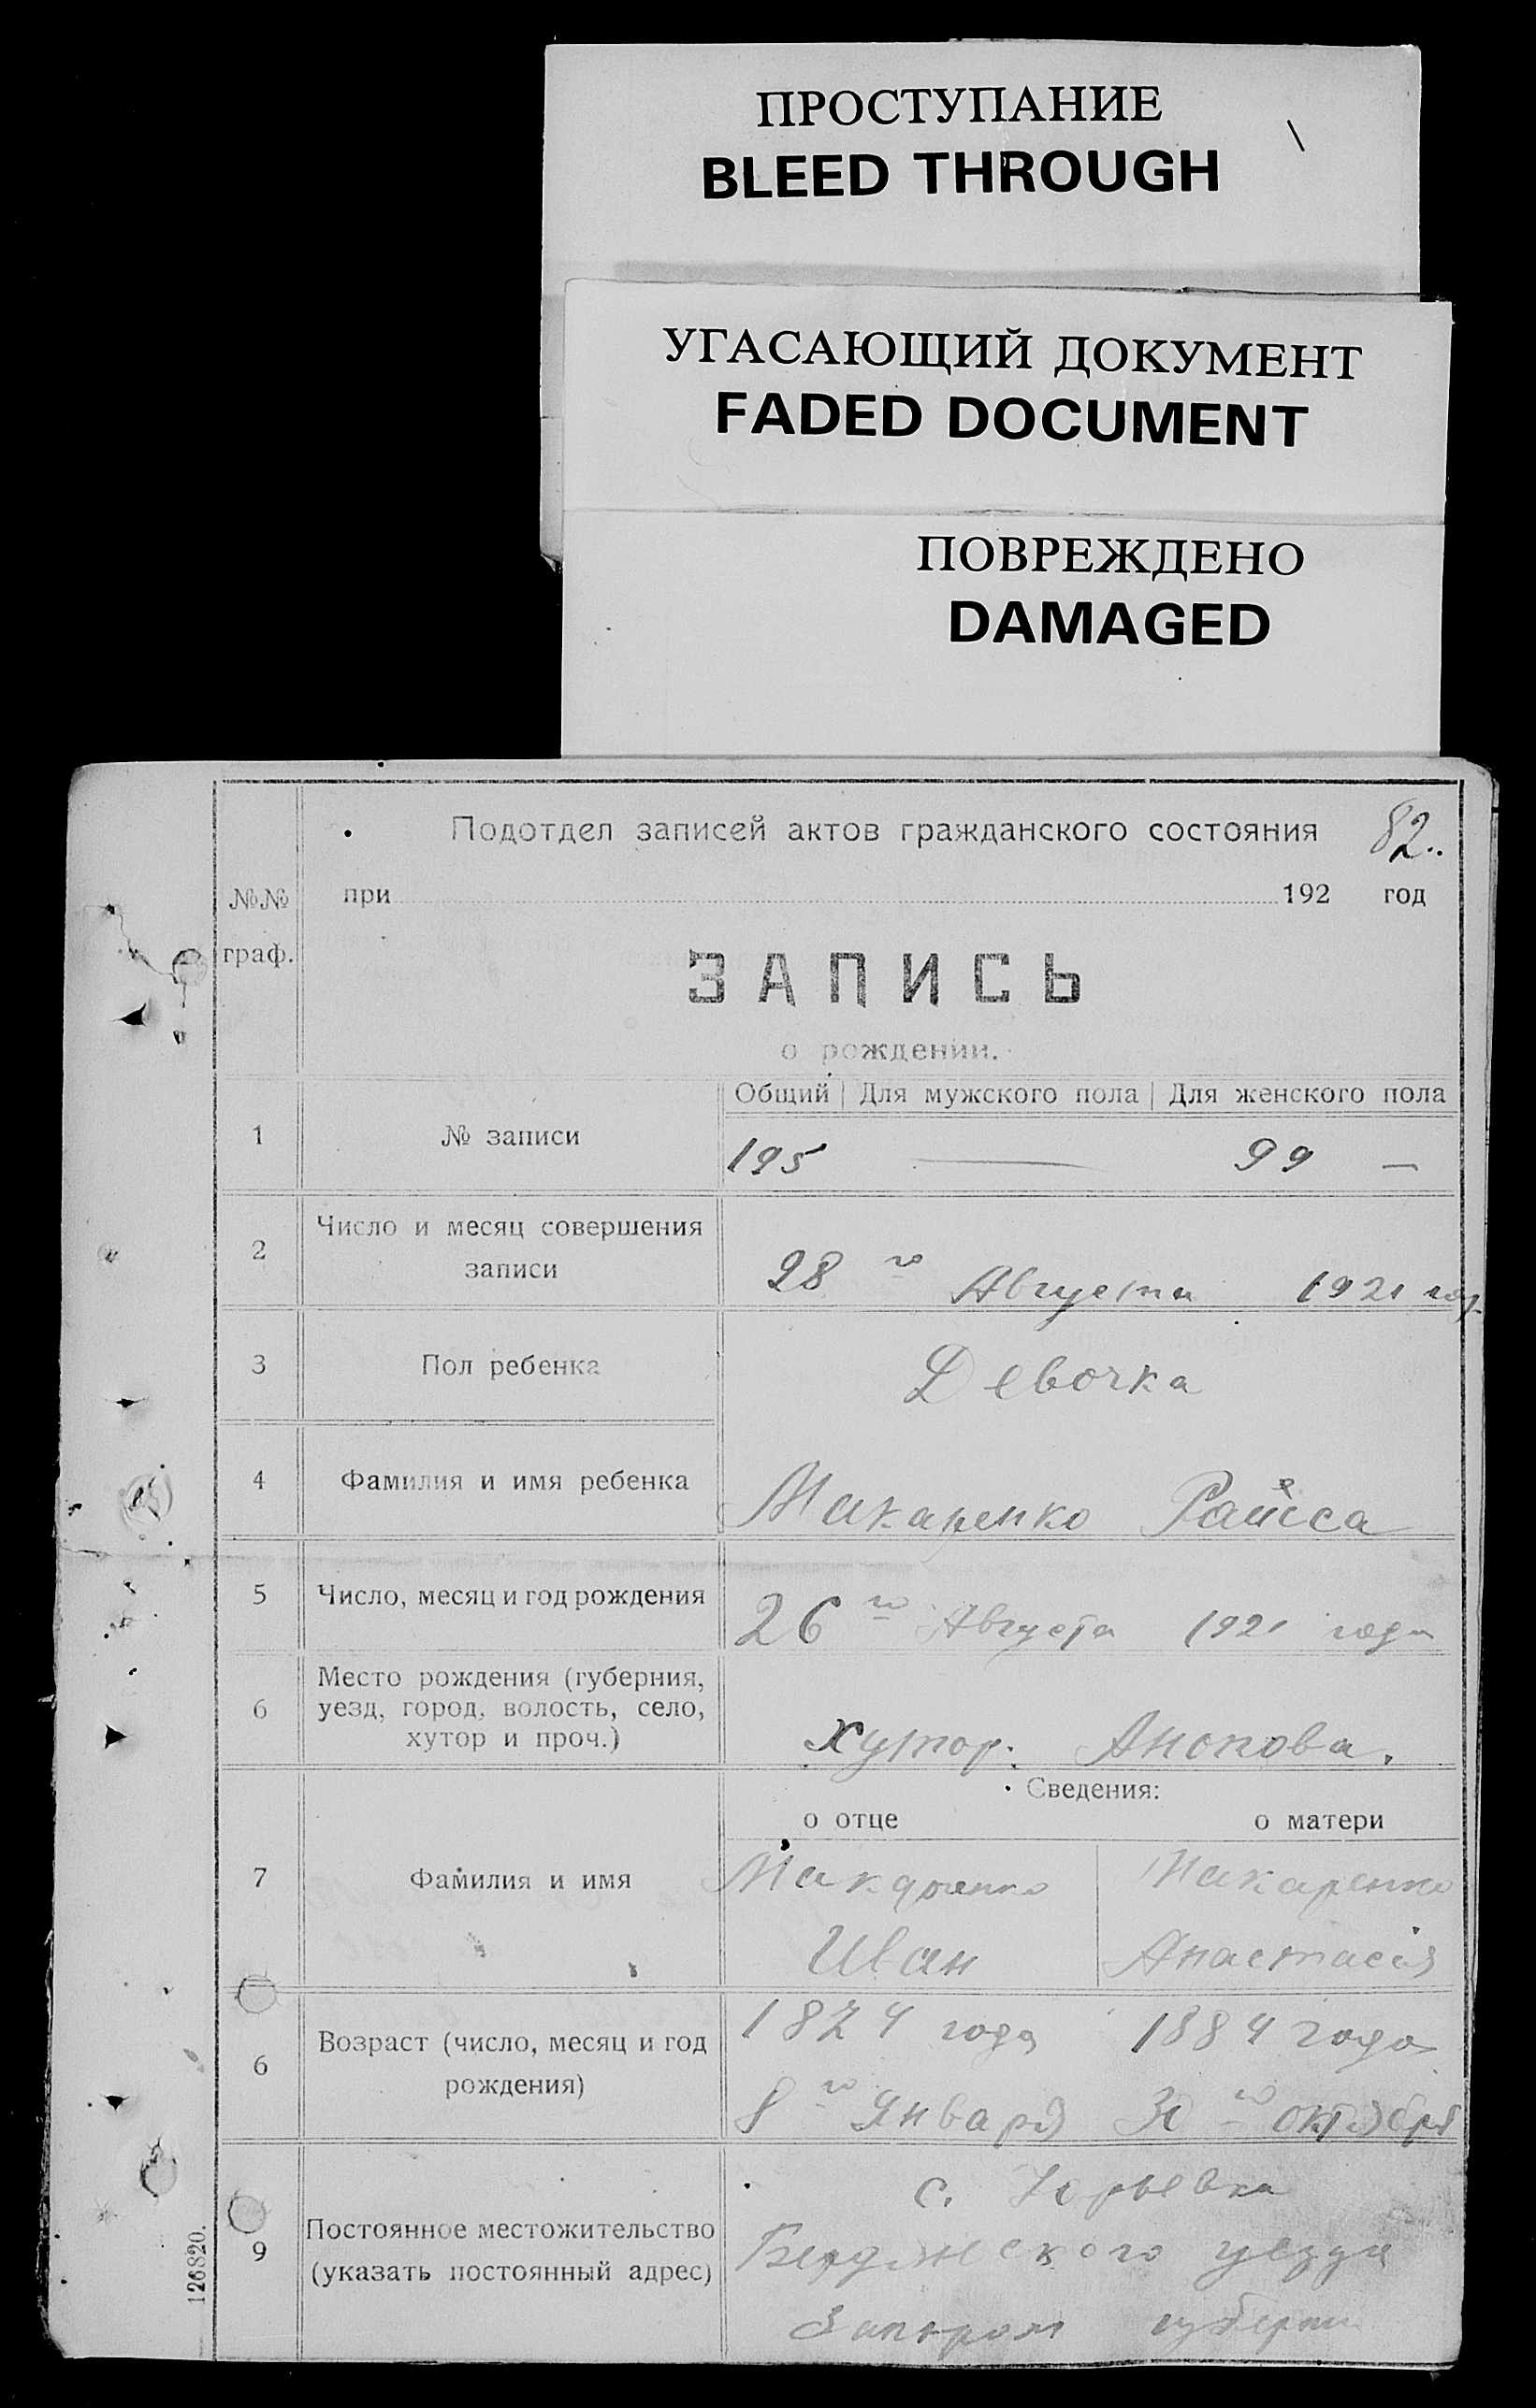 ПРОСТУПАНИЕ
BLEED THROUGH
УГАСАЮЩИЙ ДОКУМЕНТ
FADED DOCUMENT
ПОВРЕЖДЕНО
DAMAGED
Подотдел записей актов гражданского состояния 82..
№№ при 192 год
граф.
ЗАПИСЬ
о рождении.
Общий Для мужского пола Для женского пола
1 № записи 195 — 99 —
2 Число и месяц совершения
записи 28 го Августа 1921 год
3 Пол ребенка Девочка
4 Фамилия и имя ребенка Макаренко Раиса
5 Число, месяц и год рождения 26 го Августа 1921 года
6 Место рождения (губерния,
уезд, город, волость, село,
хутор и проч.) хутор. Анопова.
Сведения:
о отце о матери
7 Фамилия и имя Макаренко Макаренко
Иван Анастасия
1874 года 1884 года
6 Возраст (число, месяц и год
рождения) 8 го Января 30 го октября
с. Юрьевка
9 Постоянное местожительство Бердянского уезда
(указать постоянный адрес)
Запорож губерни
126820.